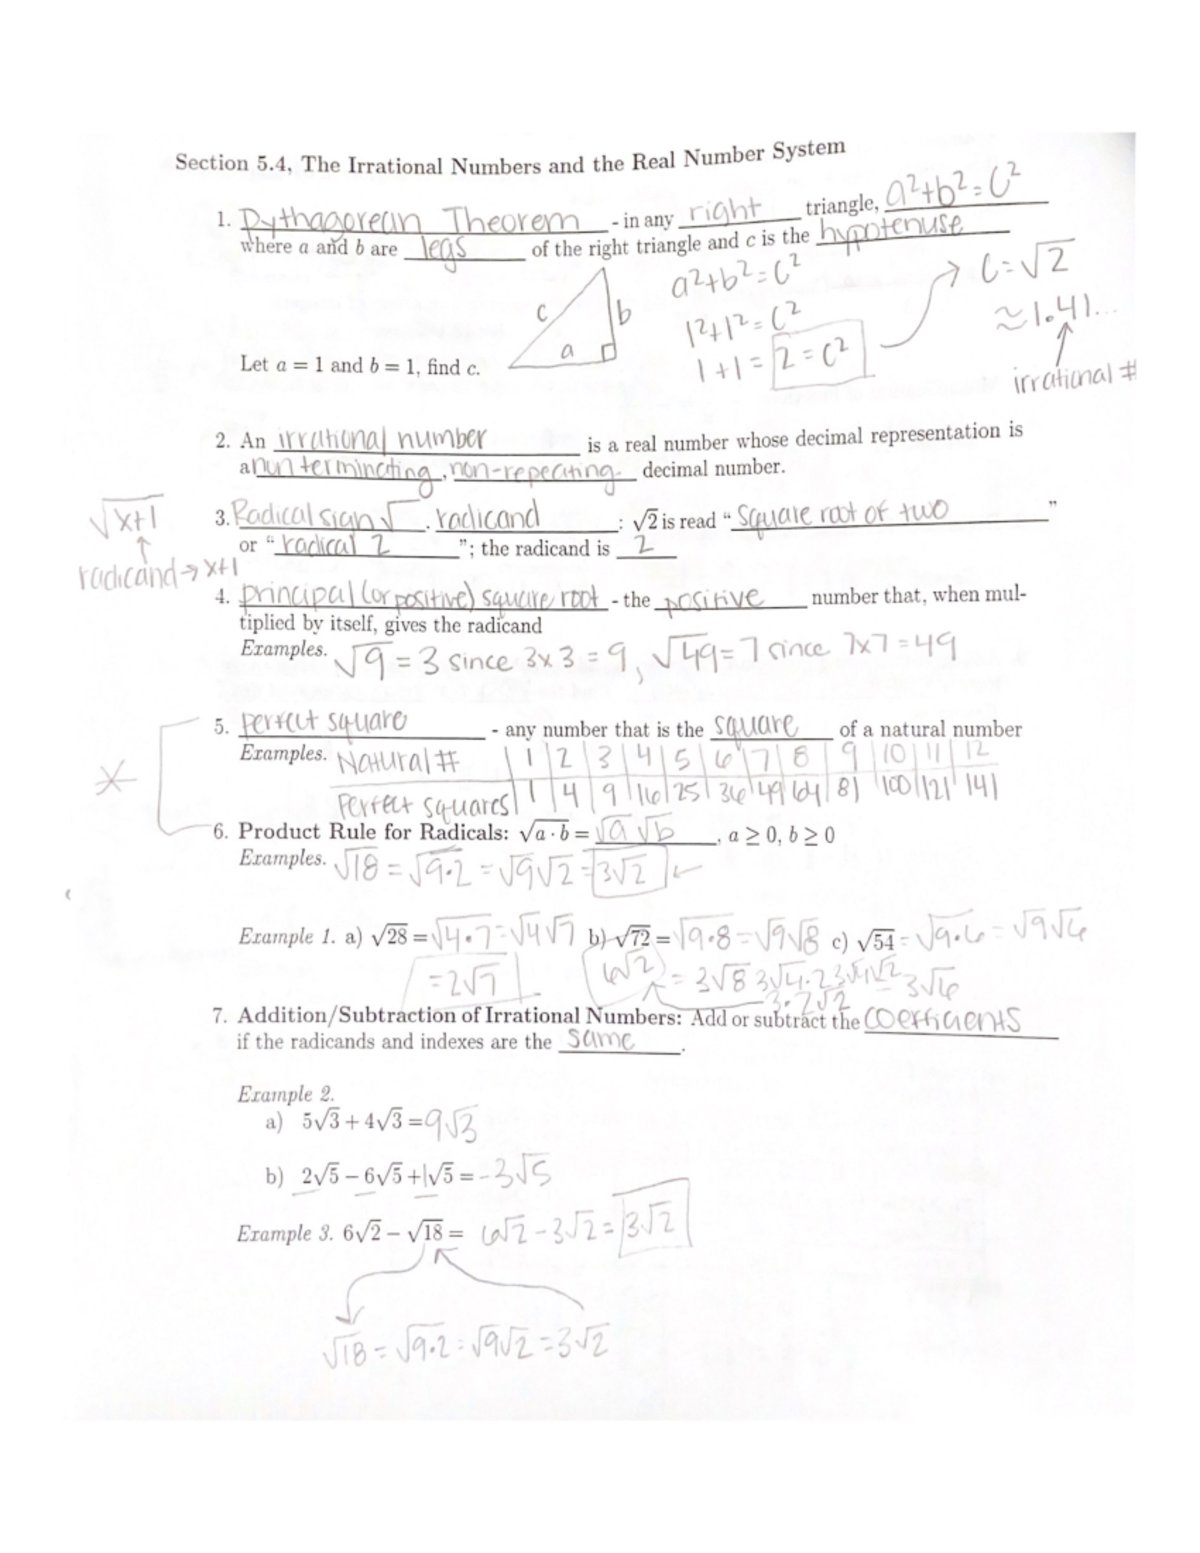 Section 5.4, The Irrational Numbers and the Real Number System
1. Pythagorean Theorem - in any right triangle, a²+b²=c²
where a and b are legs of the right triangle and c is the hypotenuse
c b a
a²+b²=c²
1²+1²=c²
1+1=2=c²
c=√2
≈1.41...
irrational #
Let a = 1 and b = 1, find c.
2. An irrational number is a real number whose decimal representation is
a non terminating, non-repeating decimal number.
√x+1
radicand→x+1
3. Radical sign √, radicand : √2 is read “square root of two”
or “radical 2”; the radicand is 2
4. principal (or positive) square root - the positive number that, when mul-
tiplied by itself, gives the radicand
Examples. √9=3 since 3x3=9, √49=7 since 7x7=49
*
5. perfect square - any number that is the square of a natural number
Examples. Natural # 1 2 3 4 5 6 7 8 9 10 11 12
Perfect squares 1 4 9 16 25 36 49 64 81 100 121 141
6. Product Rule for Radicals: √a · b = √a √b, a ≥ 0, b ≥ 0
Examples. √18=√9·2=√9√2=3√2
Example 1. a) √28=√4·7=√4√7 b) √72=√9·8=√9√8 c) √54=√9·6=√9√6
=2√7 6√2 =3√8 3√4·2 3√4√2 3√6
3·2√2
7. Addition/Subtraction of Irrational Numbers: Add or subtract the coefficients
if the radicands and indexes are the same.
Example 2.
a) 5√3+4√3=9√3
b) 2√5−6√5+1√5=-3√5
Example 3. 6√2−√18= 6√2-3√2=3√2
√18=√9·2=√9√2=3√2